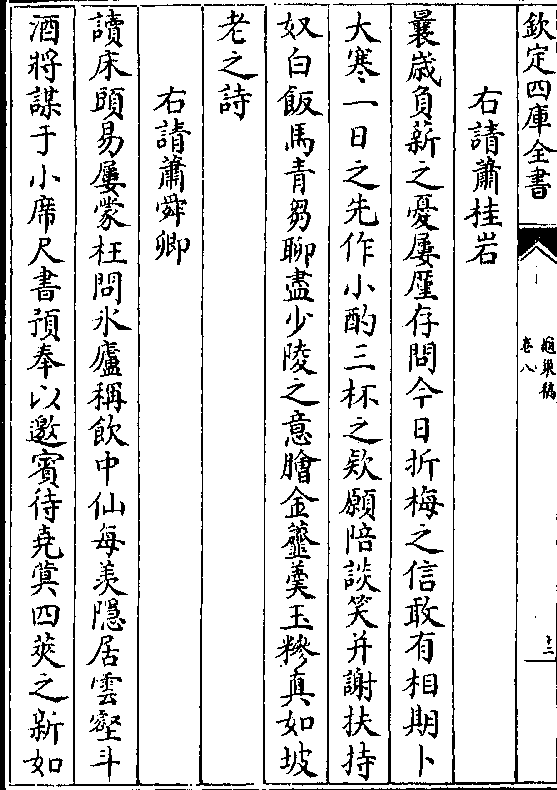 欽定四庫全書
瓢泉稿
卷八
十二
右請蕭桂岩
曩歳負薪之憂屢厪存問今日折梅之信敢有相期卜
大寒一日之先作小酌三杯之欵願陪談笑并謝扶持
奴白飯馬青芻聊盡少陵之意膾金虀羮玉糝真如坡
老之詩
右請蕭舜卿
讀床頭易屢蒙枉問氷廬稱飲中仙每羡隠居雲壑斗
酒將謀于小席尺書預奉以邀賓待堯蓂四莢之新如